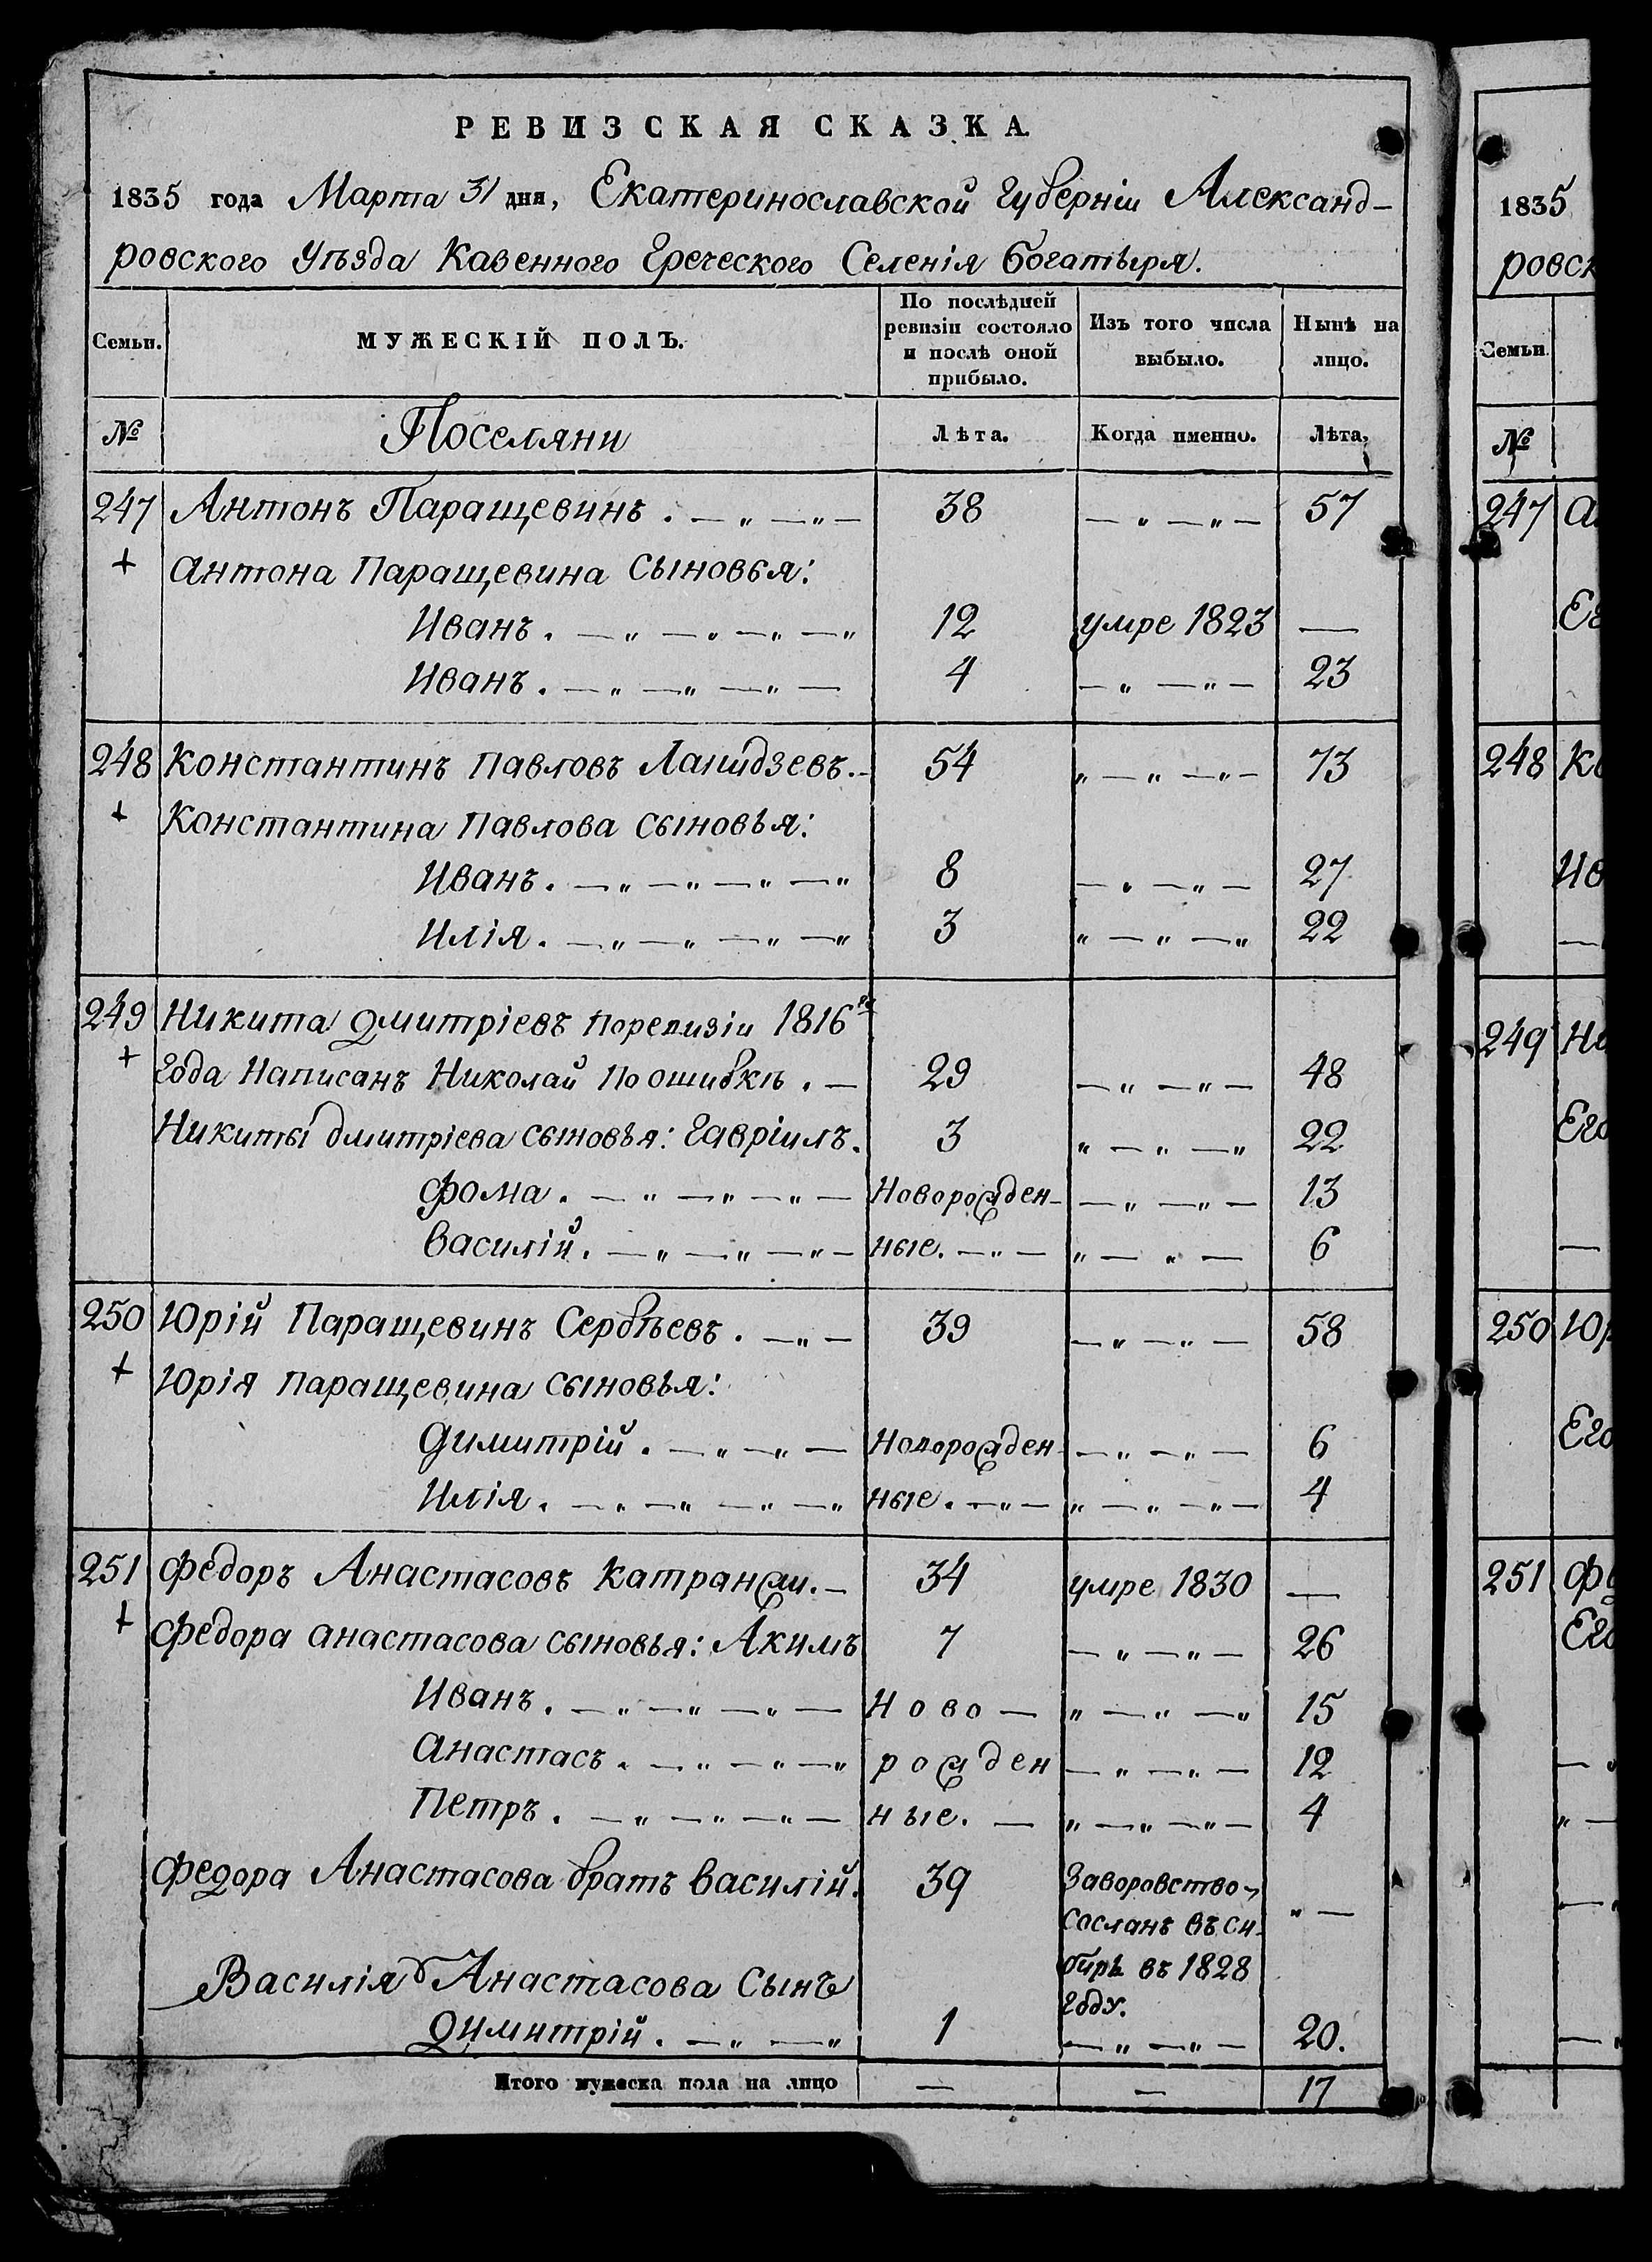 РЕВИЗСКАЯ СКАЗКА.
1835 года Марта 31 дня, Екатеринославской Губерніи Александ-
ровского Уѣзда Казенного Греческого Селенія Богатыря.
Семьи. МУЖЕСКІЙ ПОЛЪ. По послѣдней ревизіи состояло и послѣ оной прибыло. Изъ того числа выбыло. Нынѣ на лицо.
№ Поселяни Лѣта. Когда именно. Лѣта.
247 Антонъ Паращевинъ . — „ — „ — 38 — „ — „ — 57
+ Антона Паращевина Сыновья:
Иванъ . — „ — „ — „ — „ 12 умре 1823 —
Иванъ . — „ — „ — „ — 4 — „ — „ — 23
248 Константинъ Павловъ . — 54 „ — „ — „ — 73
+ Константина Павлова сыновья:
Иванъ . — „ — „ — „ — „ 8 — „ — „ — 27
Илія . — „ — „ — „ — „ 3 „ — „ — „ 22
249 Никита Дмитріевъ Поревизіи 1816го
+ Года Написанъ Николай По ошибкѣ . — 29 — „ — „ — 48
Никиты Дмитріева сыновья: Гавріилъ. 3 „ — „ — „ 22
Фома . — „ — „ — „ — Новорожден- — „ — „ — 13
Василій . — „ — „ — „ — ные. — „ — „ — „ — 6
250 Юрій Паращевинъ Сербѣевъ . — „ — 39 — „ — „ — 58
+ Юрія Паращевина Сыновья:
Димитрій . — „ — „ — Новорожден- — „ — „ — 6
Илія . — „ — „ — „ — „ ные. — „ — „ — „ — „ — 4
251 Федоръ Анастасовъ Катранжи. — 34 умре 1830 —
+ Федора Анастасова сыновья: Акимъ 7 — „ — „ — 26
Иванъ . — „ — „ — „ — Ново — „ — „ — „ 15
Анастасъ . — „ — „ — „ рожден — „ — „ — 12
Петръ . — „ — „ — „ — ные. — „ — „ — „ — 4
Федора Анастасова братъ Василій. 39 Заворовство
Сосланъ въ Си- „ —
Василія Анастасова Сынъ бирь въ 1828
Году.
Димитрій . — „ — „ 1 — „ — „ — 20.
Итого мужеска пола на лицо — — 17
1835
ровск
Семьи.
№
247
Ег
248 Ко
Ив
—
249 Ни
Его
—
250 Юр
Его
251 Фе
Его